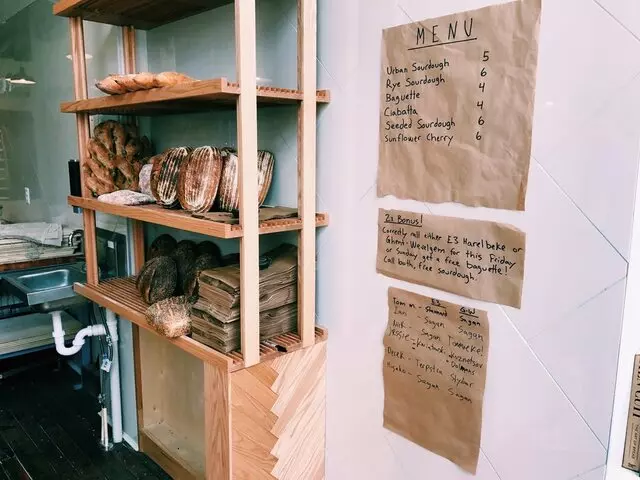 MENU
Urban Sourdough 5
Rye Sourdough 6
Baguette 4
Ciabatta 4
Seeded Sourdough 6
Sunflower Cherry 6
2x Bonus!
Correctly call either E3 Harelbeke or
Ghent-Wevelgem for this Friday
or Sunday get a free baguette!
Call both, free sourdough.
E3 G-W
Tom m - Sagan
Ian - Sagan Sagan
Nik - Sagan
Derek - Terpstra Stybar
- Sagan Sagan